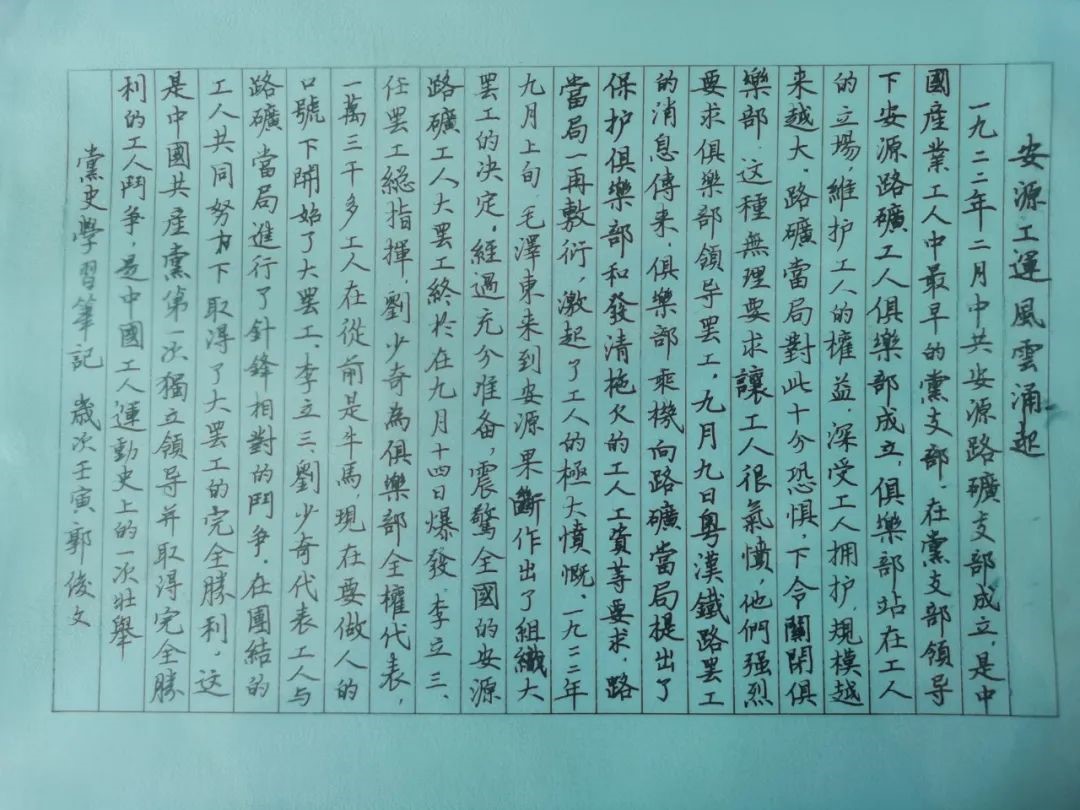 安源工運風雲涌起
一九二二年二月中共安源路礦支部成立，是中
國産業工人中最早的黨支部．在黨支部領导
下安源路礦工人俱樂部成立，俱樂部站在工人
的立場，維护工人的權益，深受工人拥护，規模越
来越大．路礦當局對此十分恐惧，下令關閉俱
樂部．这種無理要求讓工人很氣憤，他們强烈
要求俱樂部領导罢工．九月九日粤漢鐵路罢工
的消息傳来，俱樂部乘機向路礦當局提出了
保护俱樂部和發清拖欠的工人工資等要求．路
當局一再敷衍，激起了工人的極大憤慨．一九二二年
九月上旬，毛澤東来到安源果斷作出了組織大
罢工的决定．經過充分准备，震驚全國的安源
路礦工人大罢工終於在九月十四日爆發．李立三、
任罢工總指揮，劉少奇為俱樂部全權代表，
一萬三千多工人在從前是牛馬，現在要做人的
口號下開始了大罢工、李立三劉少奇代表工人与
路礦當局進行了針鋒相對的鬥争．在團結的
工人共同努力下取得了大罢工的完全勝利，这
是中國共産黨第一次獨立領导并取得完全勝
利的工人鬥争，是中國工人運動史上的一次壮舉
黨史學習筆記 歲次壬寅郭俊文